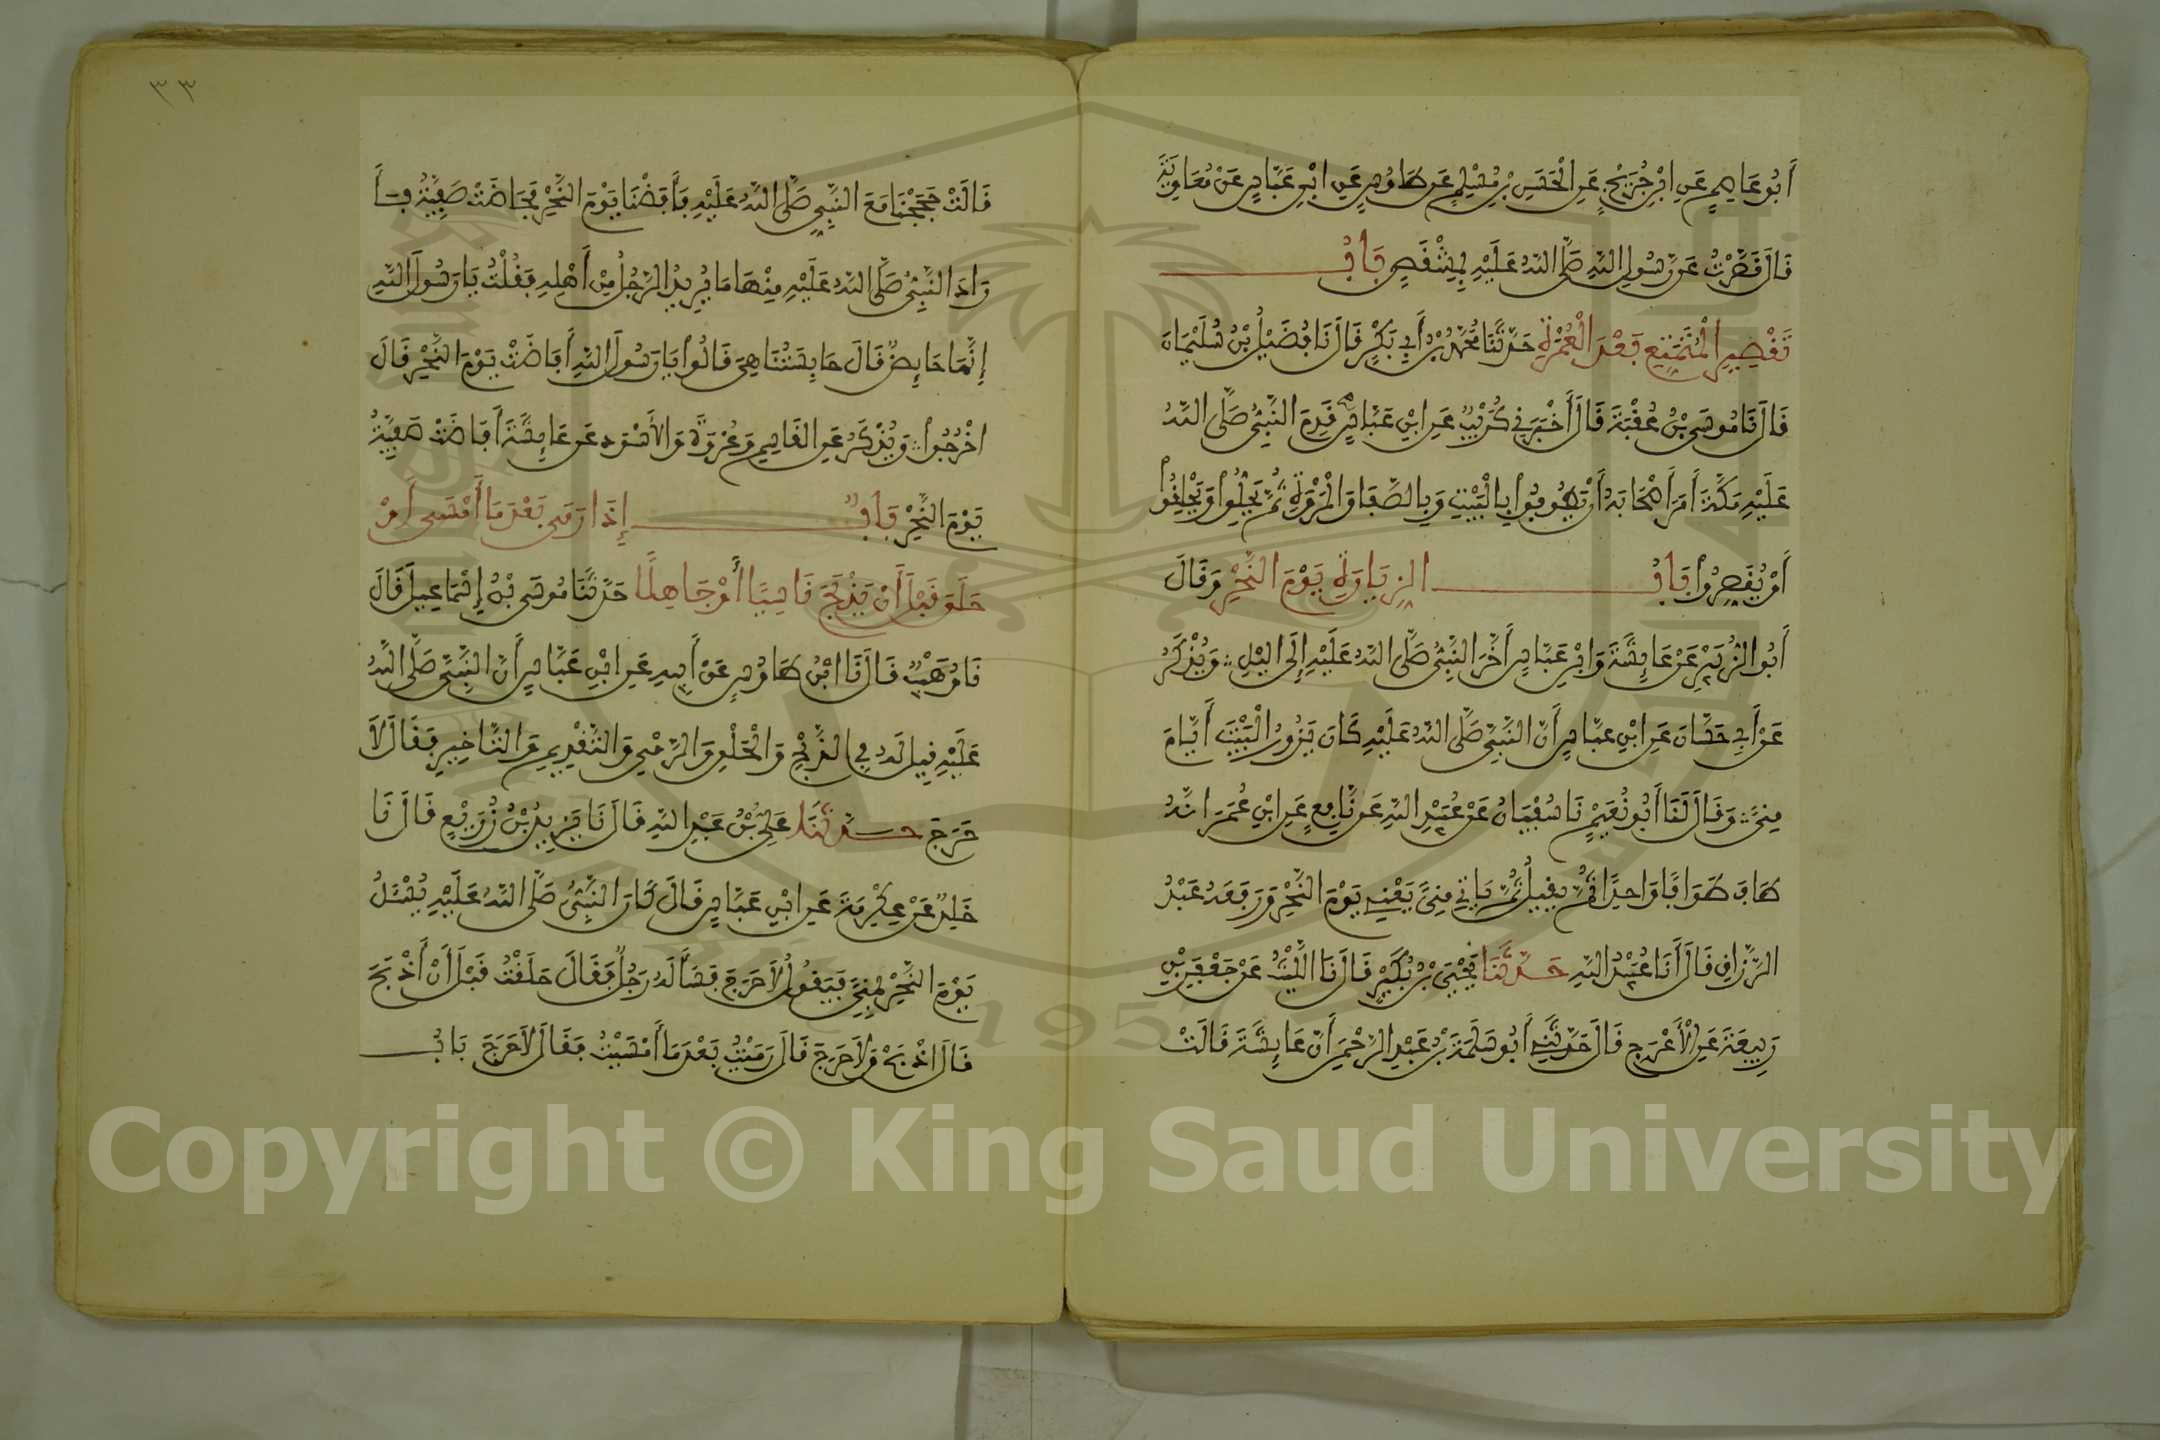 أَبُو عَاصِمٍ عَنِ ابْنِ جُرَيْجٍ عَنِ الْحَسَنِ بْنِ مُسْلِمٍ عَنْ طَاوُسٍ عَنِ ابْنِ عَبَّاسٍ عَنْ مُعَاوِيَةَ
قَالَ قَصَّرْتُ عَنْ رَسُولِ اللَّهِ صَلَّى اللَّهُ عَلَيْهِ بِمِشْقَصٍ بَابُ
تَقْصِيرِ الْمُتَمَتِّعِ بَعْدَ الْعُمْرَةِ حَدَّثَنَا مُحَمَّدُ بْنُ أَبِي بَكْرٍ قَالَ نَا فُضَيْلُ بْنُ سُلَيْمَانَ
قَالَ نَا مُوسَى بْنُ عُقْبَةَ قَالَ أَخْبَرَنِي كُرَيْبٌ عَنِ ابْنِ عَبَّاسٍ قَدِمَ النَّبِيُّ صَلَّى اللَّهُ
عَلَيْهِ مَكَّةَ أَمَرَ أَصْحَابَهُ أَنْ يَطُوفُوا بِالْبَيْتِ وَبِالصَّفَا وَالْمَرْوَةِ ثُمَّ يَحِلُّوا وَيَحْلِقُوا
أَوْ يُقَصِّرُوا بَابُ الزِّيَارَةِ يَوْمَ النَّحْرِ وَقَالَ
أَبُو الزُّبَيْرِ عَنْ عَائِشَةَ وَابْنِ عَبَّاسٍ أَخَّرَ النَّبِيُّ صَلَّى اللَّهُ عَلَيْهِ إِلَى اليْلِ وَيُذْكَرُ
عَنْ أَبِي حَسَّانَ عَنِ ابْنِ عَبَّاسٍ أَنَّ النَّبِيَّ صَلَّى اللَّهُ عَلَيْهِ كَانَ يَزُورُ الْبَيْتَ أَيَّامَ
مِنًى وَقَالَ لَنَا أَبُو نُعَيْمٍ نَا سُفْيَانُ عَنْ عُبَيْدِ اللَّهِ عَنْ نَافِعٍ عَنِ ابْنِ عُمَرَ انَّهُ
طَافَ طَوَافًا وَاحِدًا ثُمَّ يَقِيلُ ثُمَّ يَاتِي مِنًى يَعْنِي يَوْمَ النَّحْرِ وَرَفَعَهُ عَبْدُ
الرَّزَّاقِ قَالَ أَنَا عُبَيْدُ اللَّهِ حَدَّثَنَا يَحْيَى بْنُ بُكَيْرٍ قَالَ نَا اللَّيْثُ عَنْ جَعْفَرِ بْنِ
رَبِيعَةَ عَنِ الْأَعْرَجِ قَالَ حَدَّثَنِي أَبُو سَلَمَةَ بْنُ عَبْدِ الرَّحْمَنِ أَنَّ عَائِشَةَ قَالَتْ
٣٣
قَالَتْ حَجَجْنَا مَعَ النَّبِيِّ صَلَّى اللَّهُ عَلَيْهِ فَأَفَضْنَا يَوْمَ النَّحْرِ فَحَاضَتْ صَفِيَّةُ فَأَ
رَادَ النَّبِيُّ صَلَّى اللَّهُ عَلَيْهِ مِنْهَا مَا يُرِيدُ الرَّجُلُ مِنْ أَهْلِهِ فَقُلْتُ يَا رَسُولَ اللَّهِ
إِنَّهَا حَايِضٌ قَالَ حَابِسَتُنَا هِيَ قَالُوا يَا رَسُولَ اللَّهِ أَفَاضَتْ يَوْمَ النَّحْرِ قَالَ
اخْرُجُوا وَيُذْكَرُ عَنِ الْقَاسِمِ وَعُرْوَةَ وَالأَسْوَدِ عَنْ عَائِشَةَ أَفَاضَتْ صَفِيَّةُ
يَوْمَ النَّحْرِ بَابُ إِذَا رَمَى بَعْدَ مَا أَمْسَى أَوْ
حَلَقَ قَبْلَ أَنْ يَذْبَحَ نَاسِيًا أَوْ جَاهِلًا حَدَّثَنَا مُوسَى بْنُ إِسْمَاعِيلَ قَالَ
نَا وُهَيْبٌ قَالَ نَا ابْنُ طَاوُسٍ عَنْ أَبِيهِ عَنِ ابْنِ عَبَّاسٍ أَنَّ النَّبِيَّ صَلَّى اللَّهُ
عَلَيْهِ قِيلَ لَهُ فِي الذَّبْحِ وَالْحَلْقِ وَالرَّمْيِ وَالتَّقْدِيمِ وَالتَّاخِيرِ فَقَالَ لَا
حَرَجَ حَدَّثَنَا عَلِيُّ بْنُ عَبْدِ اللَّهِ قَالَ نَا يَزِيدُ بْنُ زُرَيْعٍ قَالَ نَا
خَلِدٌ عَنْ عِكْرِمَةَ عَنِ ابْنِ عَبَّاسٍ قَالَ كَانَ النَّبِيُّ صَلَّى اللَّهُ عَلَيْهِ يُسْئَلُ
يَوْمَ النَّحْرِ بِمِنًى فَيَقُولُ لَا حَرَجَ فَسَأَلَهُ رَجُلٌ فَقَالَ حَلَقْتُ قَبْلَ أَنْ أَذْبَحَ
قَالَ اذْبَحْ وَلَا حَرَجَ قَالَ رَمَيْتُ بَعْدَ مَا أَمْسَيْتُ فَقَالَ لَا حَرَجَ بَابُ
1957
Copyright © King Saud University